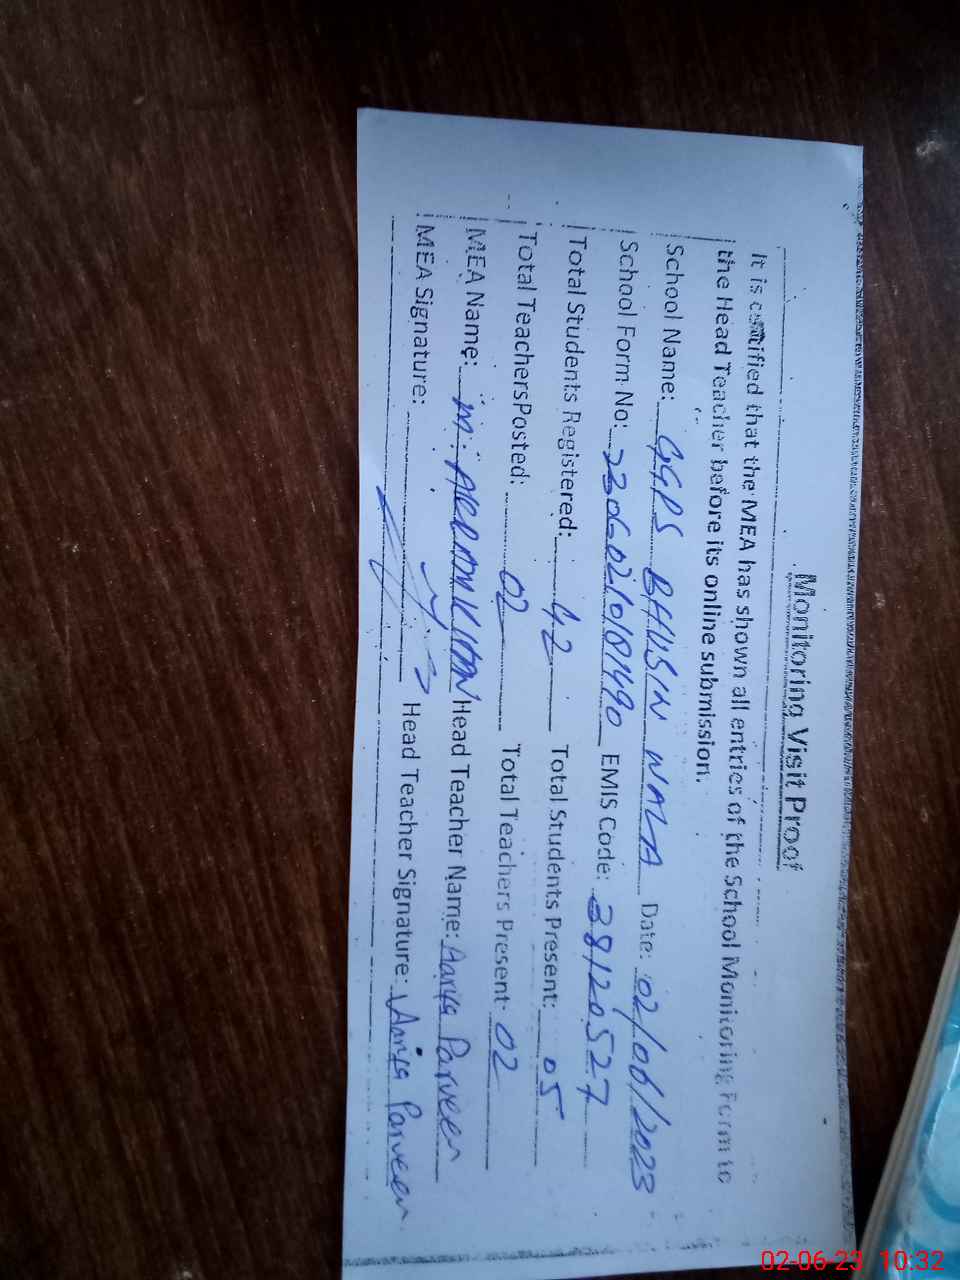 Monitoring Visit Proof
It is certified that the MEA has shown all entries of the School Monitoring Form to
the Head Teacher before its online submission.
School Name: GGPS BHUSIN WALA Date: 02/06/2023
School Form No: EMIS Code: 38120527
Total Students Registered: 42 Total Students Present: 05
Total TeachersPosted: 02 Total Teachers Present: 02
MEA Name: M. Head Teacher Name: Parveen
MEA Signature: Head Teacher Signature: Parveen
02-06-23 10:32